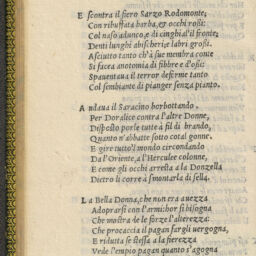 E scontra il fiero Sarzo Rodomonte;
Con ribuffata barba, & occhi rossi:
Col naso adunco, e di cinghial il fronte;
Denti lunghi
labri grossi.
Asciutto tanto ch'à sue membra conte
Si facea anatomia di fibbre e d'ossi:
Spauentaua il terror deforme tanto
Col sembiante di pianger senza pianto.
A ndaua il Saracino borbottando
Per Doralice contra l'altre Donne,
Disposto porle tutte à fil di brando,
Quanto n'abbatte sotto cotal gonne.
E gire tutto'l mondo circondando
Da l'Oriente, a l'Herculee colonne,
E come gli occhi arresta a la Donzella
Dietro li corre à smontarla di sella.
L a Bella Donna, che non era auezza
Adoprarsi con l'armi hor si bisogna
Che mostra de le forze l'alterezza:
Che procaccia il pagan fargli uergogna,
E ridutta se stessa a la fierezza
Vede l'empio pagan quanto s'agogna